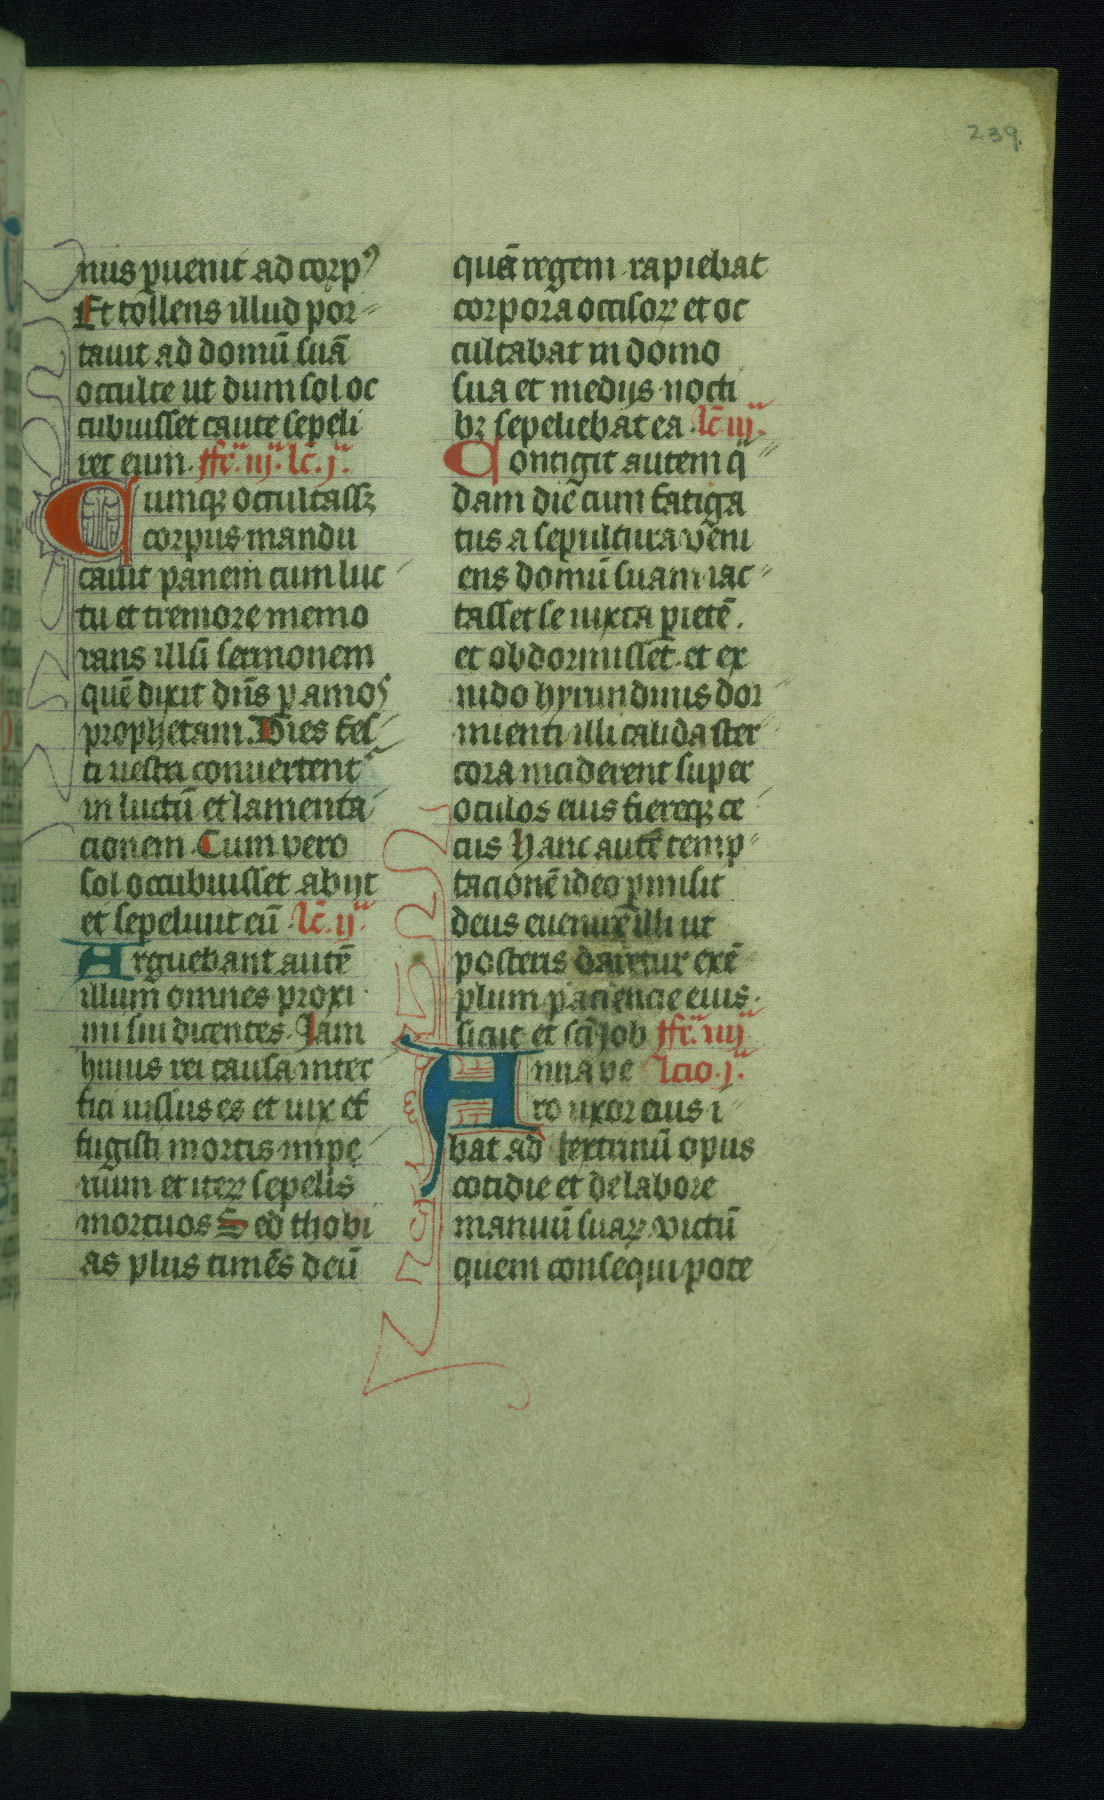 239.
nus puenit ad corpꝰ
Et tollens illud por-
tauit ad domū suā
occulte ut dum sol oc
cubuisset caute sepeli
ret eum. ffr̄. iij. lc̄. j.
Cumqꝫ occultassꝫ
corpus mandu
cauit panem cum luc
tu et tremore memo
rans illū sermonem
quē dixit dn̄s ꝑ amos
prophetam. Dies fes
ti uestri conuertent̉
in luctū et lamenta
cionem. Cum vero
sol occubuisset abijt
et sepeliuit eū. lc̄. ij.
Arguebant autē
illum omnes proxi
mi sui dicentes. Jam
huius rei causa inter
fici iussus es et uix ef
fugisti mortis impe
rium et iteꝝ sepelis
mortuos Sed thobi
as plus timēs deū
quā regem rapiebat
corpora occisoꝝ et oc
cultabat in domo
sua et medijs nocti
bꝫ sepeliebat ea. lc̄ iij.
Contigit autem q̄
dam die cum fatiga
tus a sepultura veni
ens domū suam iac
tasset se iuxta ꝑietē.
et obdormisset. et ex
nido hyrundinis dor
mienti illi calida ster
cora inciderent super
oculos eius fieretqꝫ ce
cus Hanc autē temp
tacionē ideo ꝑmisit
deus euenire illi ut
posteris daretur exē
plum paciencie eius.
sicut et sc̄i Job ffr̄. iiij
Anna ve lcio. j.
ro uxor eius i
bat ad textrinū opus
cotidie et de labore
manuū suaꝝ victū
quem consequi pote